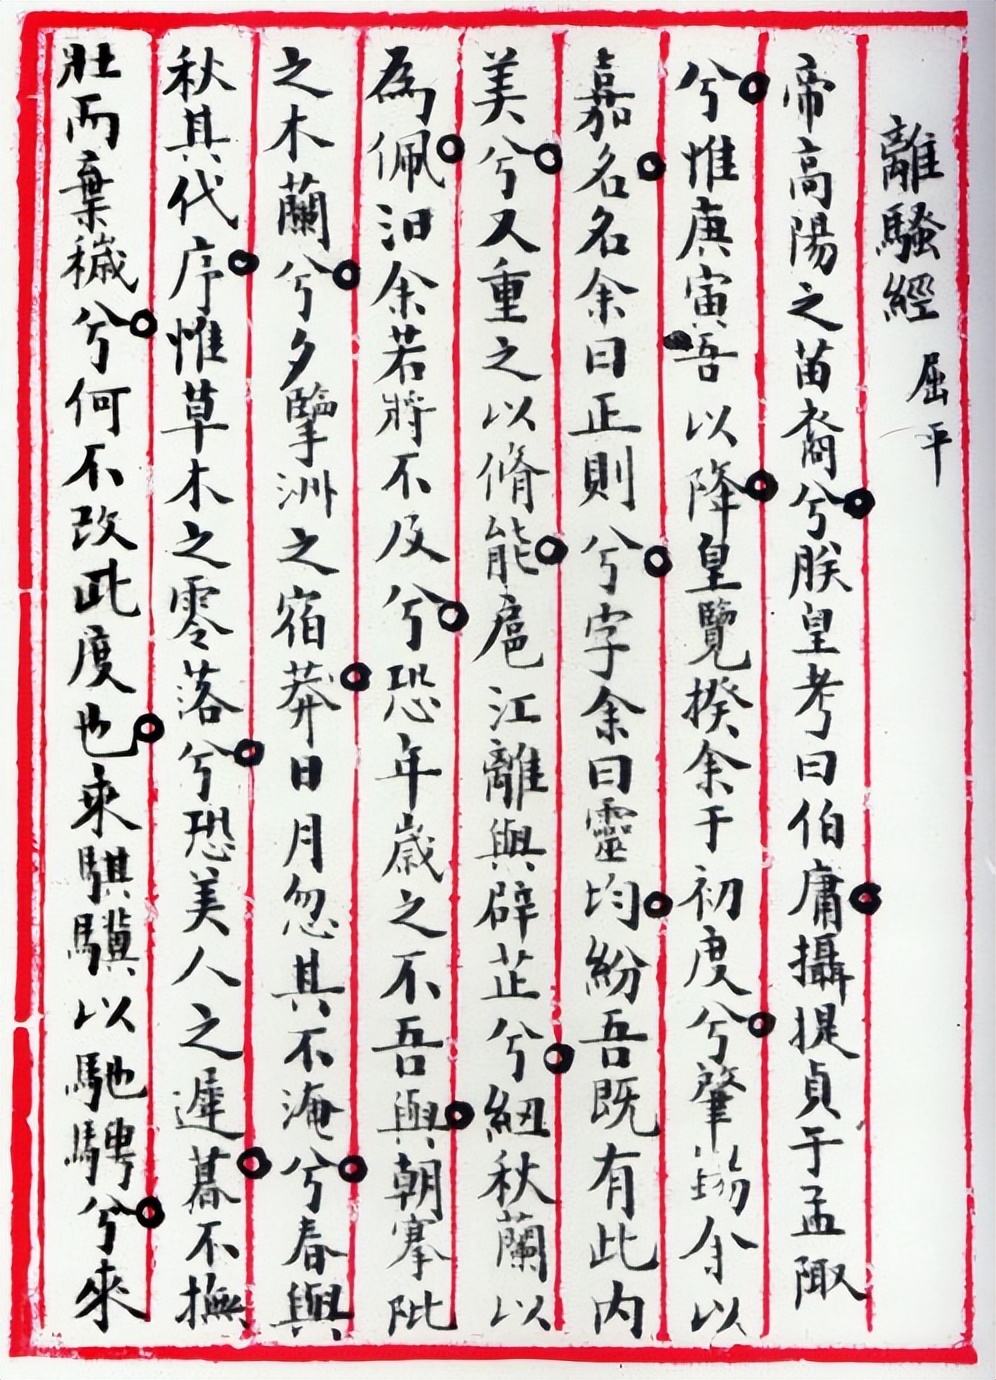 離騷經 屈平
帝高陽之苗裔兮朕皇考曰伯庸攝提貞于孟陬
兮惟庚寅吾以降皇覽揆余于初度兮肇錫余以
嘉名名余曰正則兮字余曰靈均紛吾既有此内
美兮又重之以脩能扈江離與辟芷兮紉秋蘭以
為佩汨余若將不及兮恐年歲之不吾與朝搴阰
之木蘭兮夕擥洲之宿莽日月忽其不淹兮春與
秋其代序惟草木之零落兮恐美人之遲暮不撫
壯而棄穢兮何不改此度也乘騏驥以馳騁兮來